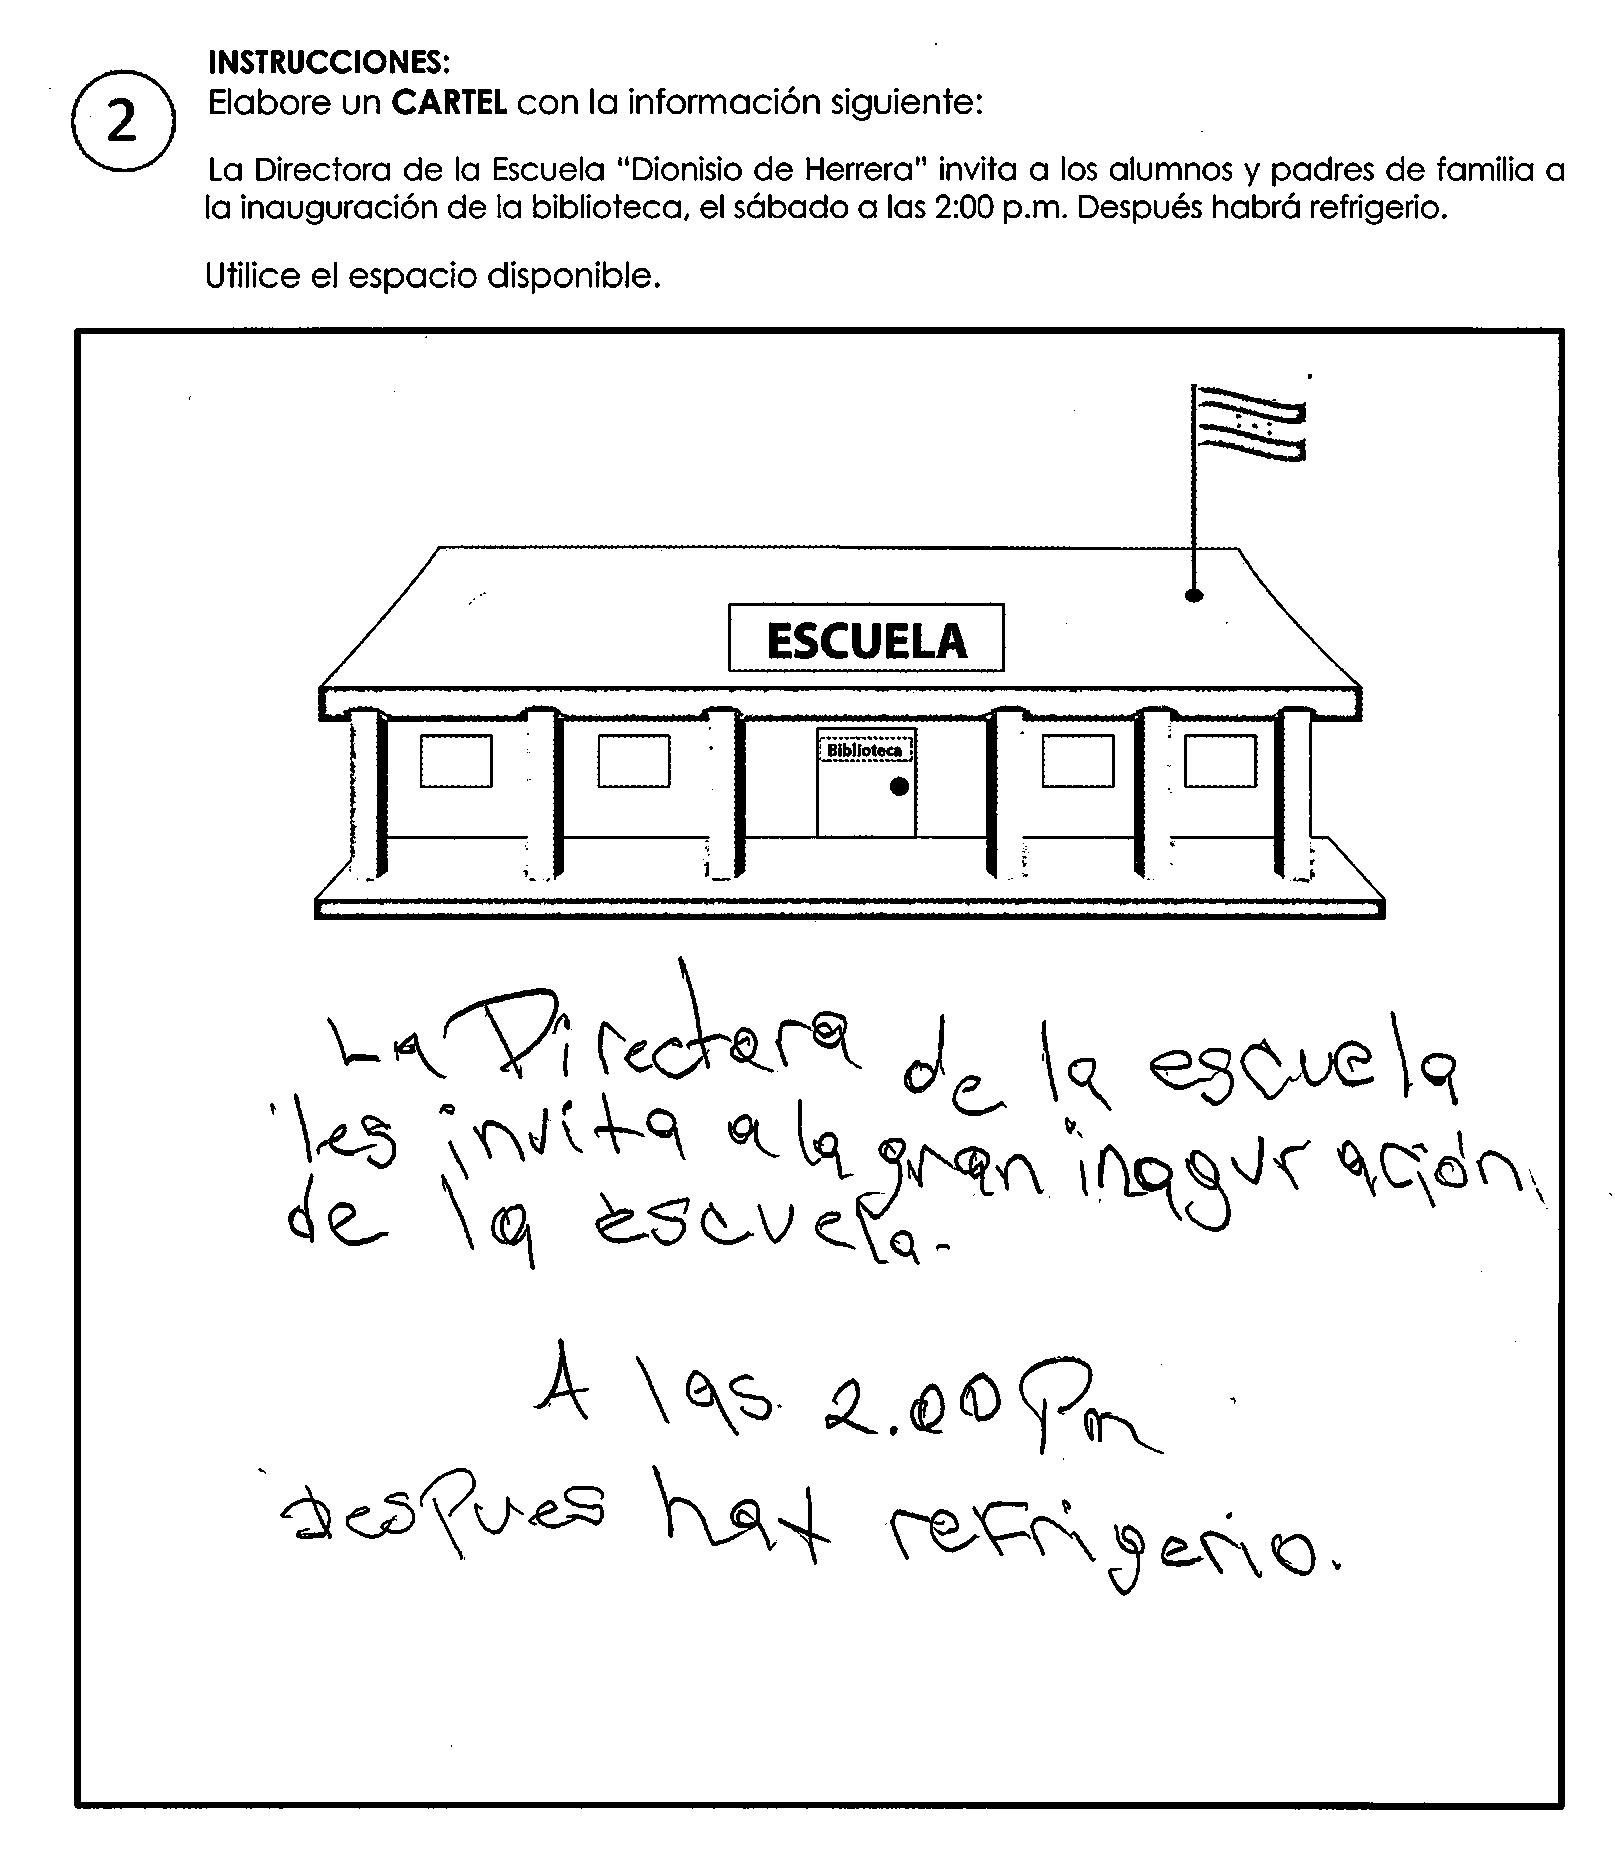 INSTRUCCIONES:
2
Elabore un CARTEL con la información siguiente:
La Directora de la Escuela "Dionisio de Herrera" invita a los alumnos y padres de familia a
la inauguración de la biblioteca, el sábado a las 2:00 p.m. Después habrá refrigerio.
Utilice el espacio disponible.
ESCUELA
Biblioteca
La Directora de la escuela
les invita a la gran inaguración
de la escuela.
A las 2.00 Pm
Despues hay refrigerio.